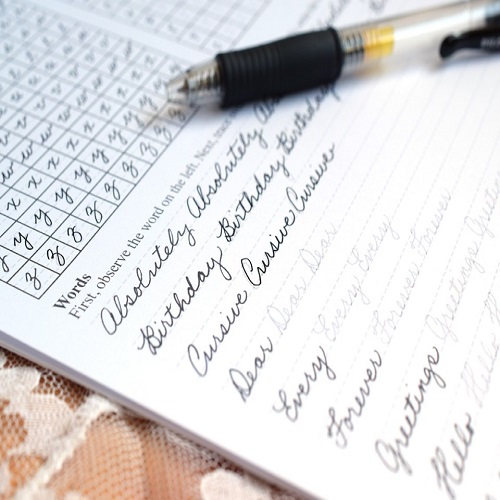 w w w
x x x x x x
y y y y y y
z z z z z z
Words
First, observe the word on the left. Next,
Absolutely Absolutely
Birthday Birthday Birthday
Cursive Cursive Cursive
Dear Dear Dear
Every Every Every
Forever Forever Forever
Greetings Greetings
Hello Hello